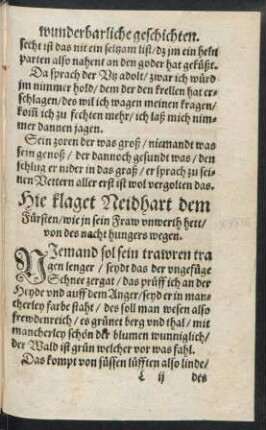 wunderbarliche geschichten.
secht ist das nit ein seltzam list/dz jm ein helm
parten also nahent an den goder hat geküßt.
Da sprach der Vtz adolt/zwar ich würd
jm nimmer hold/dem der den krellen hat er-
schlagen/des wil ich wagen meinen kragen/
kom̃ ich zu fechten mehr/ich laß mich nim-
mer dannen jagen.
Sein zoren der was groß/niemandt was
sein genoß/der dannoch gesundt was/den
schlug er nider in das graß/er sprach zu sei-
nen Vettern aller erst ist wol vergolten das.
Hie klaget Neidhart dem
Fürsten/wie in sein Fraw vnwerth hett/
von des nacht hungers wegen.
NJemand sol sein trawren tra
gen lenger/seydt das der vngefüge
Schnee zergat/das prüff ich an der
Heyde vnd auff dem Anger/seyd er in man-
cherley farbe staht/des soll man wesen also
frewdenreich/es grünet berg vnd thal/mit
mancherley schön der blumen wunniglich/
der Wald ist grün welcher vor was fahl.
Das kompt von süssen lüfften also linde/
ij des